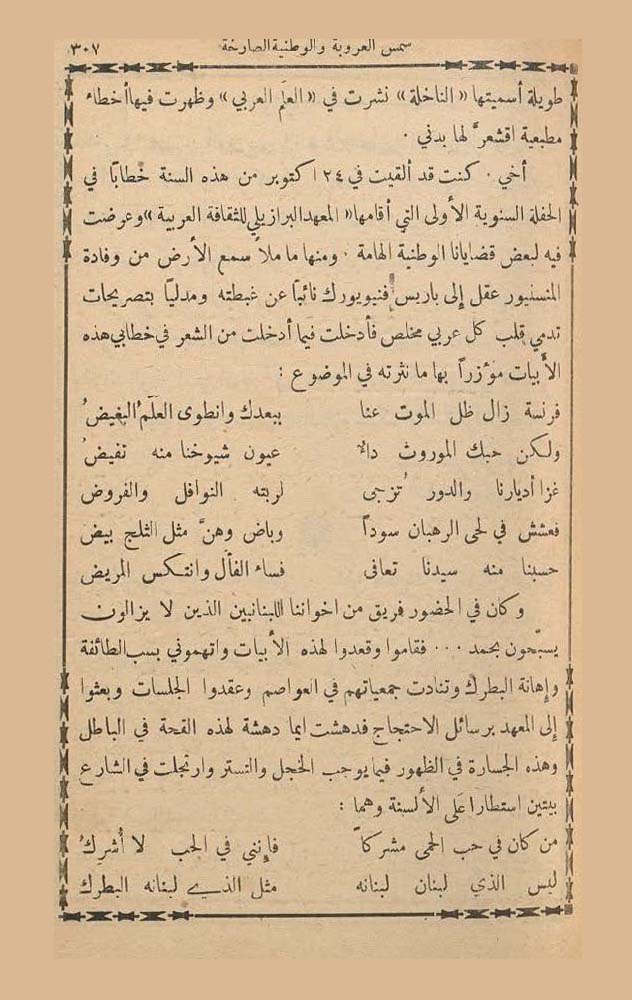 شمس العروبة والوطنية الصارخة ٣٠٧
طويلة أسميتها « الناخلة » نشرت في « العلَم العربي » وظهرت فيها أخطاء
مطبعية اقشعرَّ لها بدني .
أخي . كنت قد ألقيت في ٢٤ اكتوبر من هذه السنة خطابًا في
الحفلة السنوية الأولى التي أقامها « المعهد البرازيلي للثقافة العربية » وعرضت
فيه لبعض قضايانا الوطنية الهامة . ومنها ما ملأ سمع الأرض من وفادة
المنسنيور عقل إلى باريس فنيويورك نائبًا عن غبطته ومدليًا بتصريحات
تدمي قلب كل عربي مخلص فأدخلت فيما أدخلت من الشعر في خطابي هذه
الأبيات مؤزراً بها ما نثرته في الموضوع :
فرنسة زال ظل الموت عنا ببعدك وانطوى العلَمُ البغيضُ
ولكن حبك الموروث داءٌ عيون شيوخنا منه تفيضُ
غزا أديارنا والدور تُزجى لربته النوافل والفروض
فعشش في لحى الرهبان سوداً وباض وهنَّ مثل الثلج بيض
حسبنا منه سيدنا تعافى فساء الفأل وانتكس المريض
وكان في الحضور فريق من اخواننا اللبنانيين الذين لا يزالون
يسبّحون بحمد ... فقاموا وقعدوا لهذه الأبيات واتهموني بسب الطائفة
وإهانة البطرك وتنادت جمعياتهم في العواصم وعقدوا الجلسات وبعثوا
إلى المعهد برسائل الاحتجاج فدهشت ايما دهشة لهذه القحة في الباطل
وهذه الجسارة في الظهور فيما يوجب الخجل والتستر وارتجلت في الشارع
بيتين استطارا على الألسنة وهما :
من كان في حب الحمى مشركاً فإنني في الحب لا أُشركُ
ليس الذي لبنان لبنانه مثل الذي لبنانه البطرك